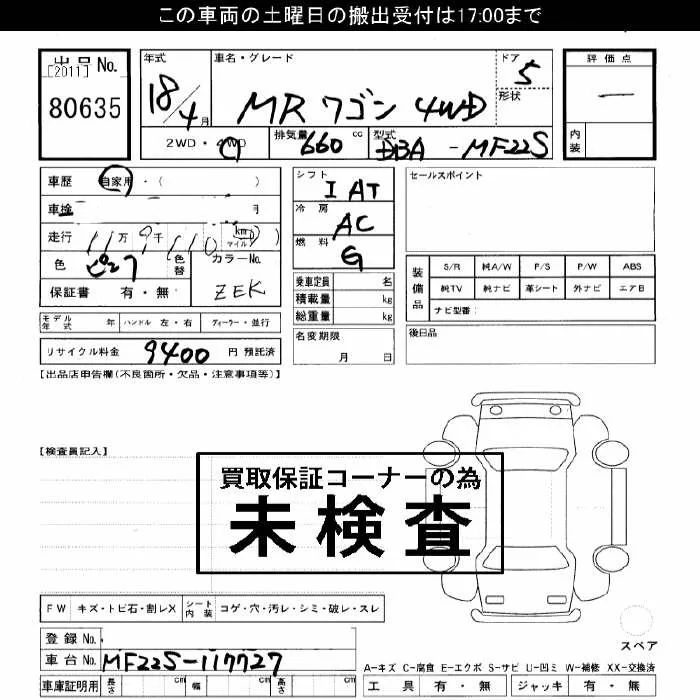 この車両の土曜日の搬出受付は17:00まで
出品 No.
[2011]
80635
年式
18/4月
車名・グレード
MR ワゴン 4WD
ドア
5
形状
評価点
―
内装
2WD・4WD
排気量 660 cc
型式 DBA-MF22S
車歴 自家用・( )
車検 月
走行 11万9千110 (km マイル)
色 ピンク
色替
カラーNo.
ZEK
保証書 有・無
モデル年式 年 ハンドル 左・右 ディーラー・並行
リサイクル料金 9400 円 預託済
シフト
I AT
冷房
AC
燃料
G
乗車定員 名
積載量 kg
総重量 kg
名変期限
月 日
セールスポイント
装備品
S/R 純A/W P/S P/W ABS
純TV 純ナビ 革シート 外ナビ エアB
ナビ型番:
後日品
【出品店申告欄(不良箇所・欠品・注意事項等)】
【検査員記入】
買取保証コーナーの為
未検査
FW キズ・トビ石・割レX
シート内装 コゲ・穴・汚レ・シミ・破レ・スレ
登録 No.
車台No. MF22S-117727
車庫証明用 長さ cm 幅 cm 高さ cm
スペア
A-キズ C-腐食 E-エクボ S-サビ U-凹ミ W-補修 XX-交換済
工具 有・無 ジャッキ 有・無